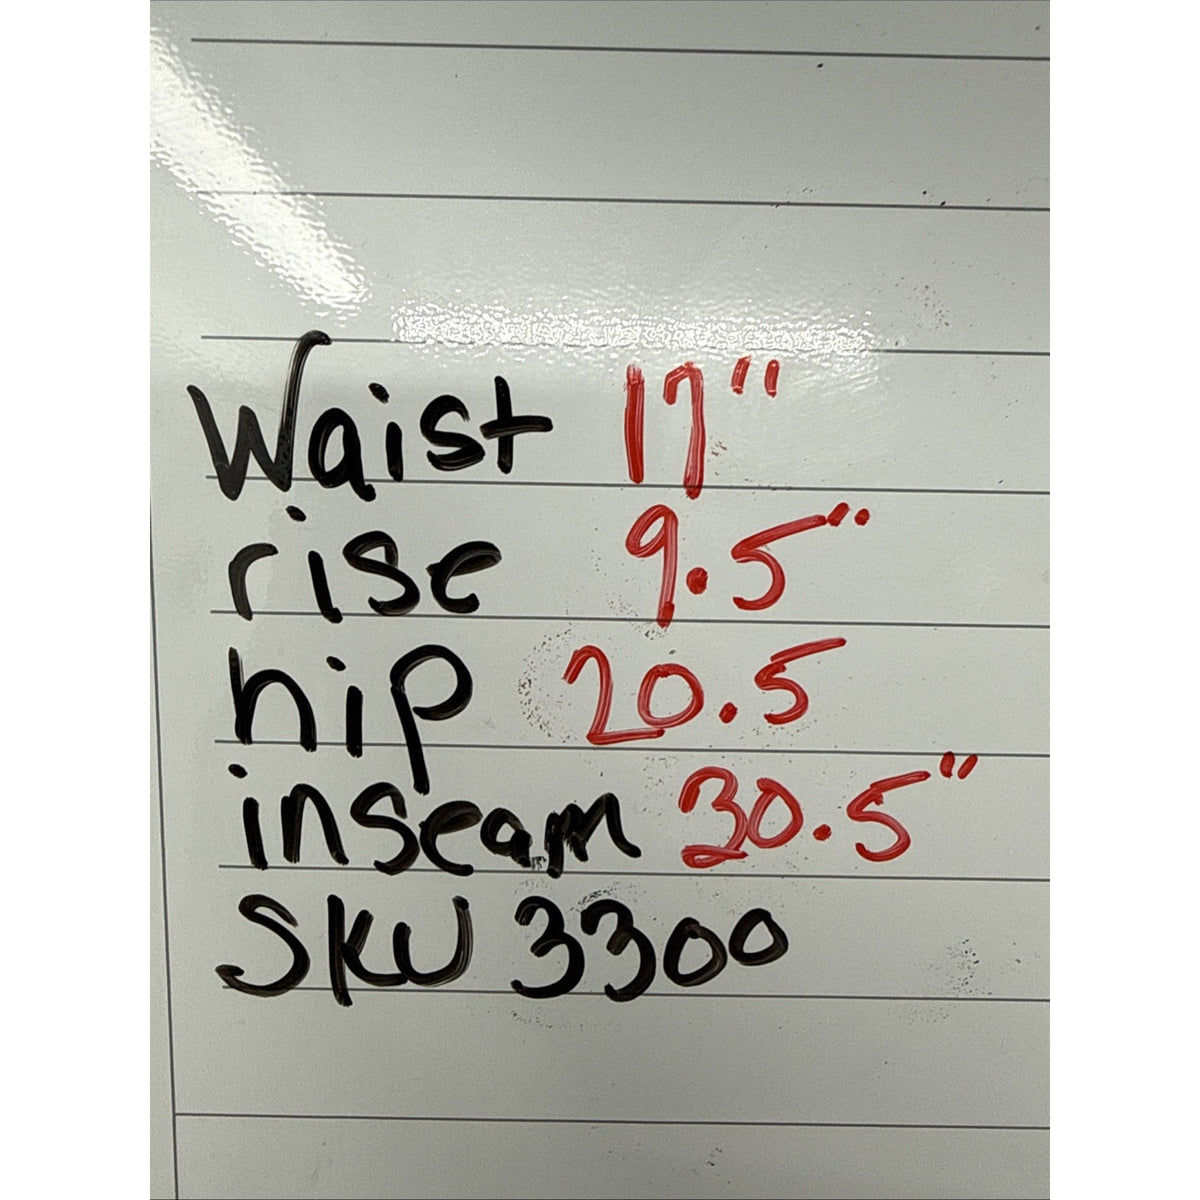 Waist 17"
rise 9.5"
hip 20.5
inseam 30.5"
SKU 3300